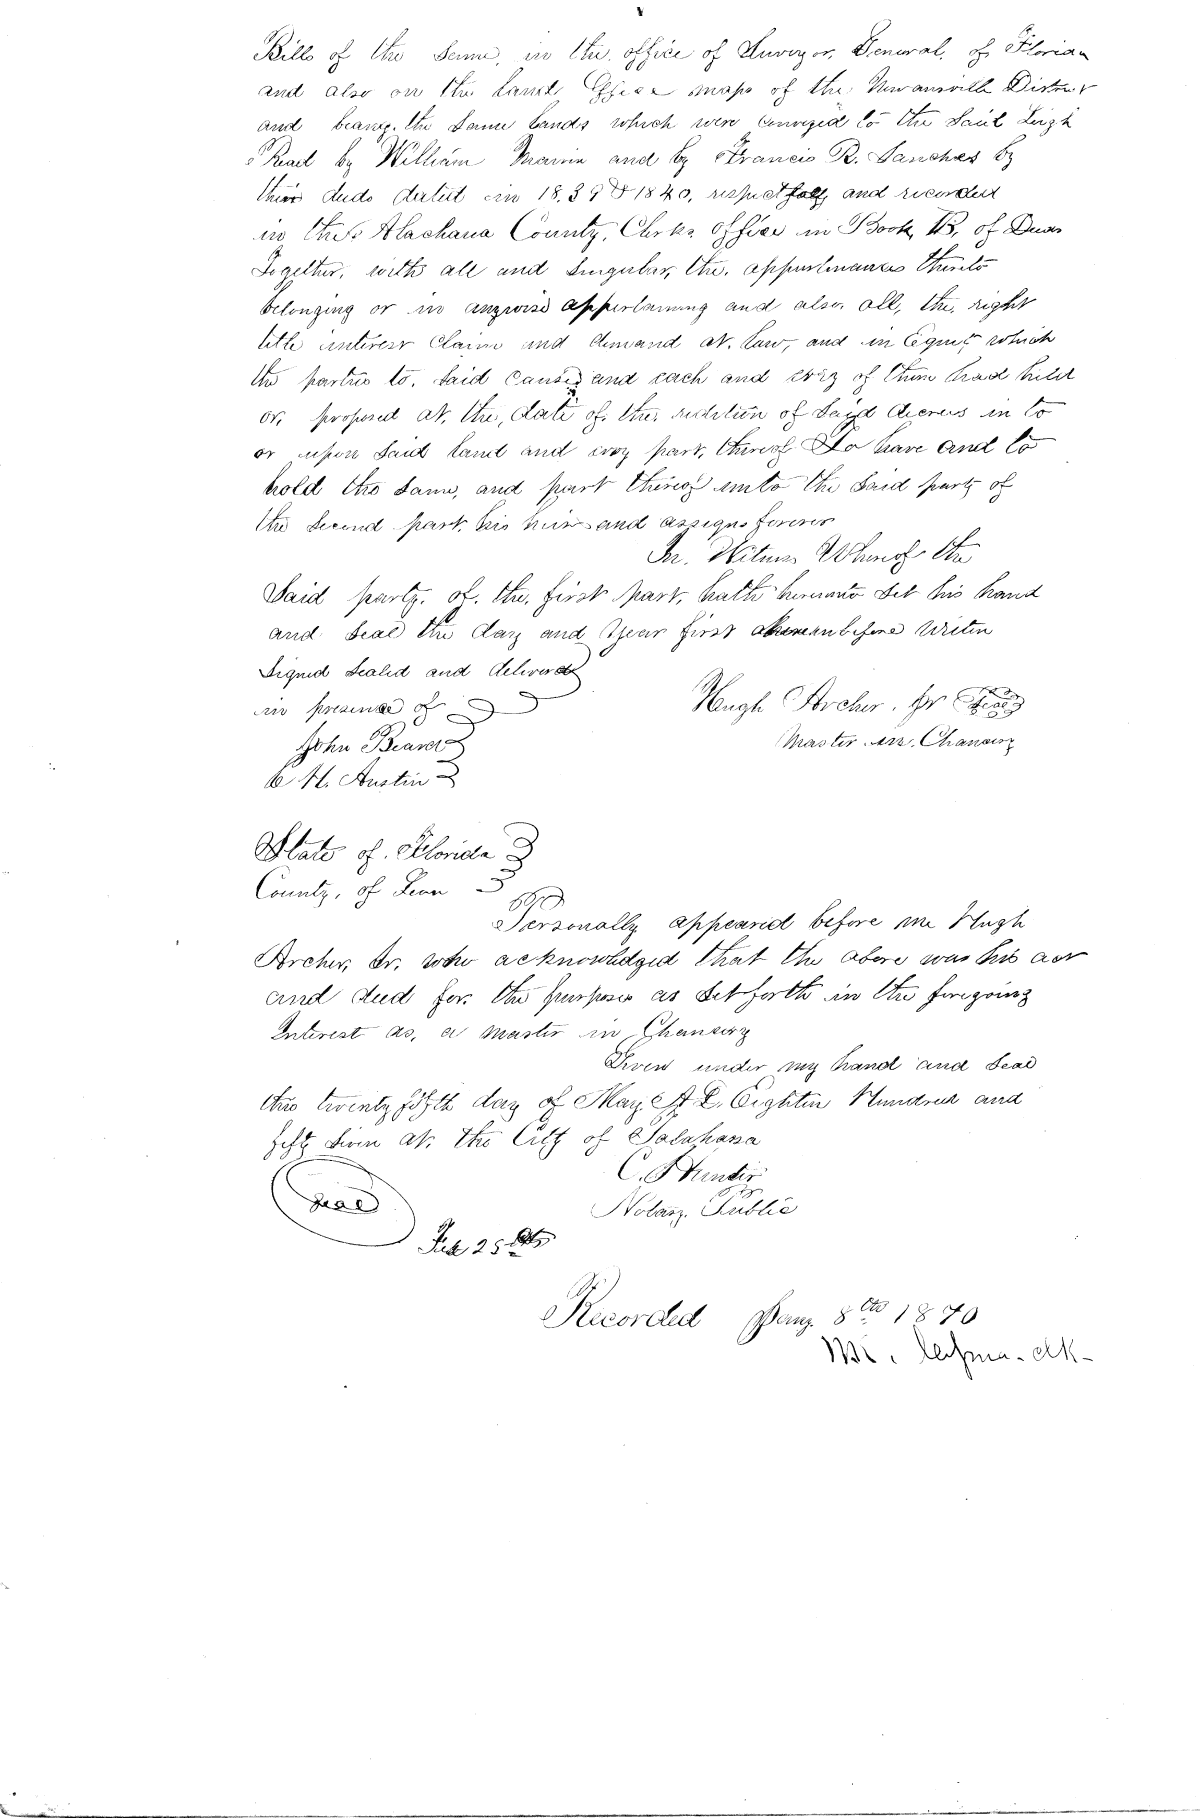 Bills of the Same, in the office of Surveyor, General, of Florida
and also on the Land Office maps of the Newansville District
and being the Same lands which were conveyed to the Said Leigh
Read by William and by Francis R. Sanches by
their deeds dated in 1839 & 1840, and recorded
in the Alachaua County, Clerks Office in Book, B, of Deeds
Together, with all and Singular, the, appurtenances thereto
belonging or in anywise appertaining and also, all, the, right
title interest Claim and demand at. Law, and in Equity which
the parties to, Said Causes and each and evry of them had held
or, at, the, date of, the, of Said decrees in to
or upon Said land and evry part, thereof To have and to
hold the Same, and part thereof unto the Said party of
the Second part, his heirs and assigns forever
In. Witness Whereof the
Said party, of, the, first part, hath hereunto Set his hand
and Seal the day and Year first hereinbefore Writen
Signed Sealed and deliverd
in presence of
John Beard
H. Austin
Hugh Archer, Seal
Master in. Chancery
State of. Florida
County, of Leon
Personally appeared before me Hugh
Archer, who acknowledged that the above was his act
and deed for the purposes as Set forth in the foregoing
Interest as, a master in Chancery
Given under my hand and Seal
this twenty fifth day of May A D. Eighten Hundred and
fifty at, the City of Talahassa
C. Hunter
Notary. Public
Seal
25 cts
Recorded Jany. 8th 1870
clk-